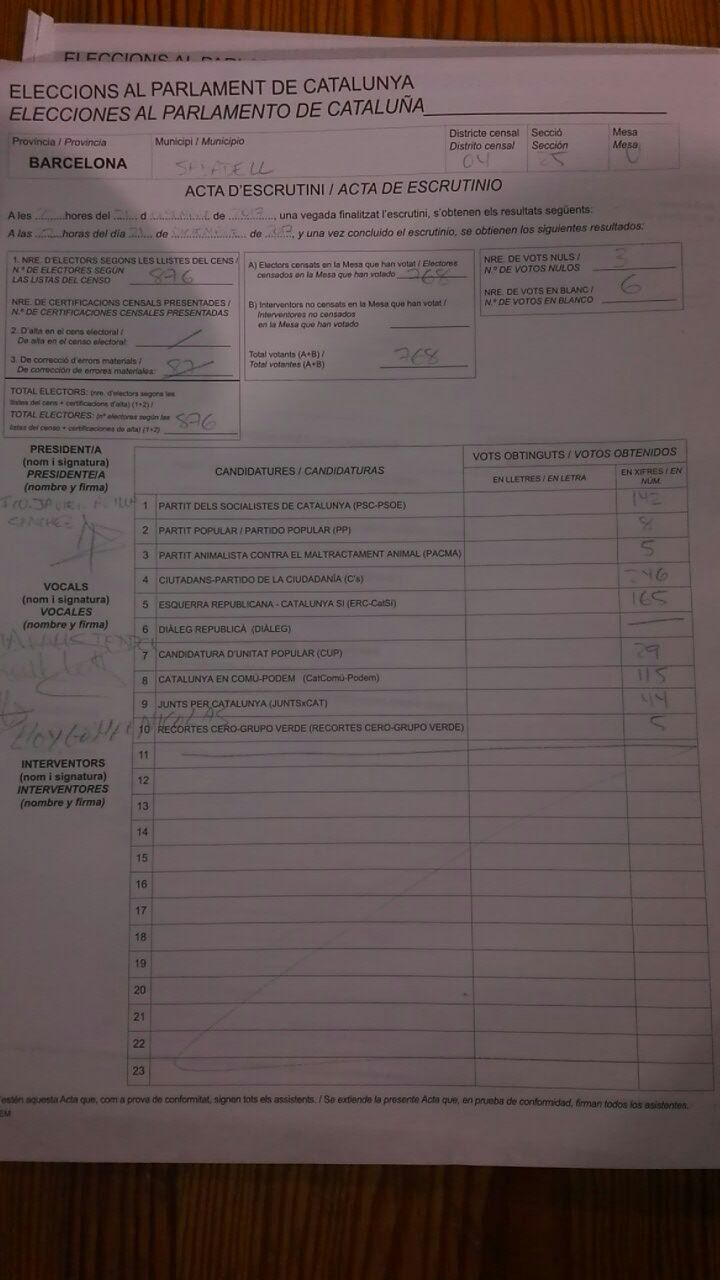 ELECCIONS AL PARLA
ELECCIONS AL PARLAMENT DE CATALUNYA
ELECCIONES AL PARLAMENTO DE CATALUÑA
Província / Provincia
BARCELONA
Municipi / Municipio
SABADELL
Districte censal
Distrito censal
04
Secció
Sección
25
Mesa
Mesa
U
ACTA D'ESCRUTINI / ACTA DE ESCRUTINIO
A les hores del 21 d de 2017, una vegada finalitzat l'escrutini, s'obtenen els resultats següents:
A las horas del día 21 de DICIEMBRE de 2017, y una vez concluido el escrutinio, se obtienen los siguientes resultados:
1. NRE. D'ELECTORS SEGONS LES LLISTES DEL CENS /
N.º DE ELECTORES SEGÚN
LAS LISTAS DEL CENSO 876
NRE. DE CERTIFICACIONS CENSALS PRESENTADES /
N.º DE CERTIFICACIONES CENSALES PRESENTADAS
2. D'alta en el cens electoral /
De alta en el censo electoral:
3. De correcció d'errors materials /
De corrección de errores materiales:
TOTAL ELECTORS: (nre. d'electors segons les
llistes del cens + certificacions d'alta) (1+2) /
TOTAL ELECTORES: (nº electores según las
listas del censo + certificaciones de alta) (1+2) 876
A) Electors censats en la Mesa que han votat / Electores
censados en la Mesa que han votado 768
B) Interventors no censats en la Mesa que han votat /
Interventores no censados
en la Mesa que han votado
Total votants (A+B) /
Total votantes (A+B) 768
NRE. DE VOTS NULS /
N.º DE VOTOS NULOS 3
NRE. DE VOTS EN BLANC /
N.º DE VOTOS EN BLANCO 6
PRESIDENT/A
(nom i signatura)
PRESIDENTE/A
(nombre y firma)
SANCHEZ
VOCALS
(nom i signatura)
VOCALES
(nombre y firma)
INTERVENTORS
(nom i signatura)
INTERVENTORES
(nombre y firma)
CANDIDATURES / CANDIDATURAS
VOTS OBTINGUTS / VOTOS OBTENIDOS
EN LLETRES / EN LETRA
EN XIFRES / EN
NÚM.
1 PARTIT DELS SOCIALISTES DE CATALUNYA (PSC-PSOE) 142
2 PARTIT POPULAR / PARTIDO POPULAR (PP) 8
3 PARTIT ANIMALISTA CONTRA EL MALTRACTAMENT ANIMAL (PACMA) 5
4 CIUTADANS-PARTIDO DE LA CIUDADANÍA (C's) 246
5 ESQUERRA REPUBLICANA - CATALUNYA SÍ (ERC-CatSí) 165
6 DIÀLEG REPUBLICÀ (DIÀLEG)
7 CANDIDATURA D'UNITAT POPULAR (CUP) 29
8 CATALUNYA EN COMÚ-PODEM (CatComú-Podem) 115
9 JUNTS PER CATALUNYA (JUNTSxCAT) 44
10 RECORTES CERO-GRUPO VERDE (RECORTES CERO-GRUPO VERDE) 5
11
12
13
14
15
16
17
18
19
20
21
22
23
estén aquesta Acta que, com a prova de conformitat, signen tots els assistents. / Se extiende la presente Acta que, en prueba de conformidad, firman todos los asistentes.